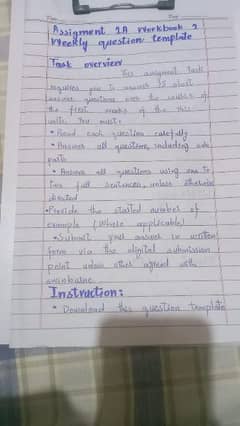 Assigment 2A Workbook 2
Weekly question template
Task overview
This assigment task
requires you to answer 25 short
answer questions over the course of
the first weeks of the this
units You must:
• Read each question carefully
• Answer all questions, including sub
parts
• Answer all questions using one to
two full sentences, unless otherwise
directed
• Provide the stated number of
example (Where applicable)
• Submit your answer in written
form via the digital submission
point unless other agreed with
Instruction:
• Download this question template